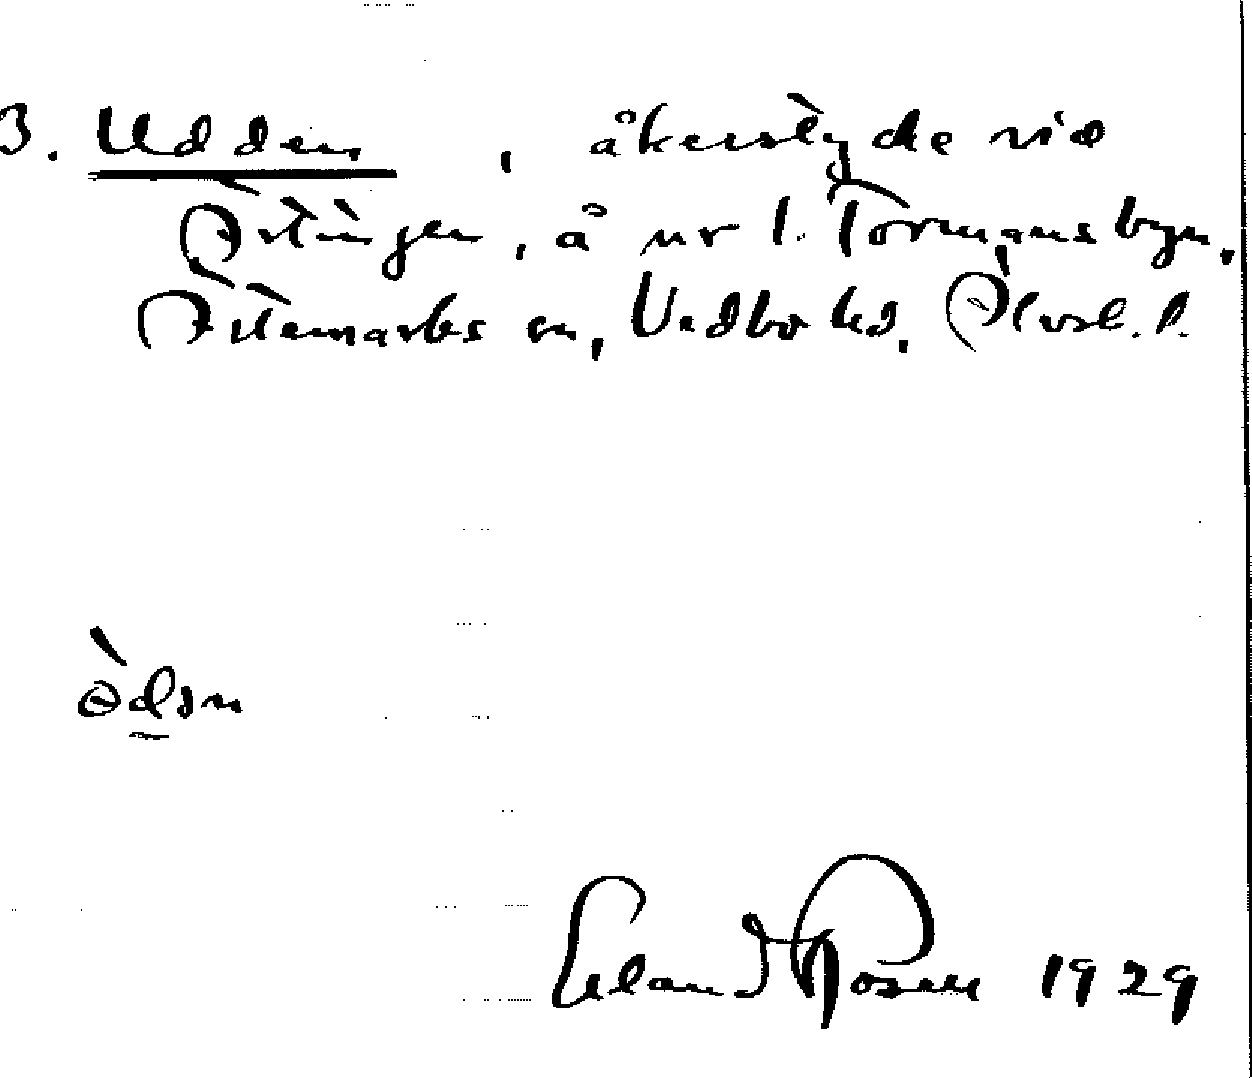 3. Udden, åkerstycke vid
Ärtingen, å nr 1. Tormansbyn,
Ärtemarks sn, Vedbo hd, Älvsb. l.
ə̀dən
Erland Rosell 1929